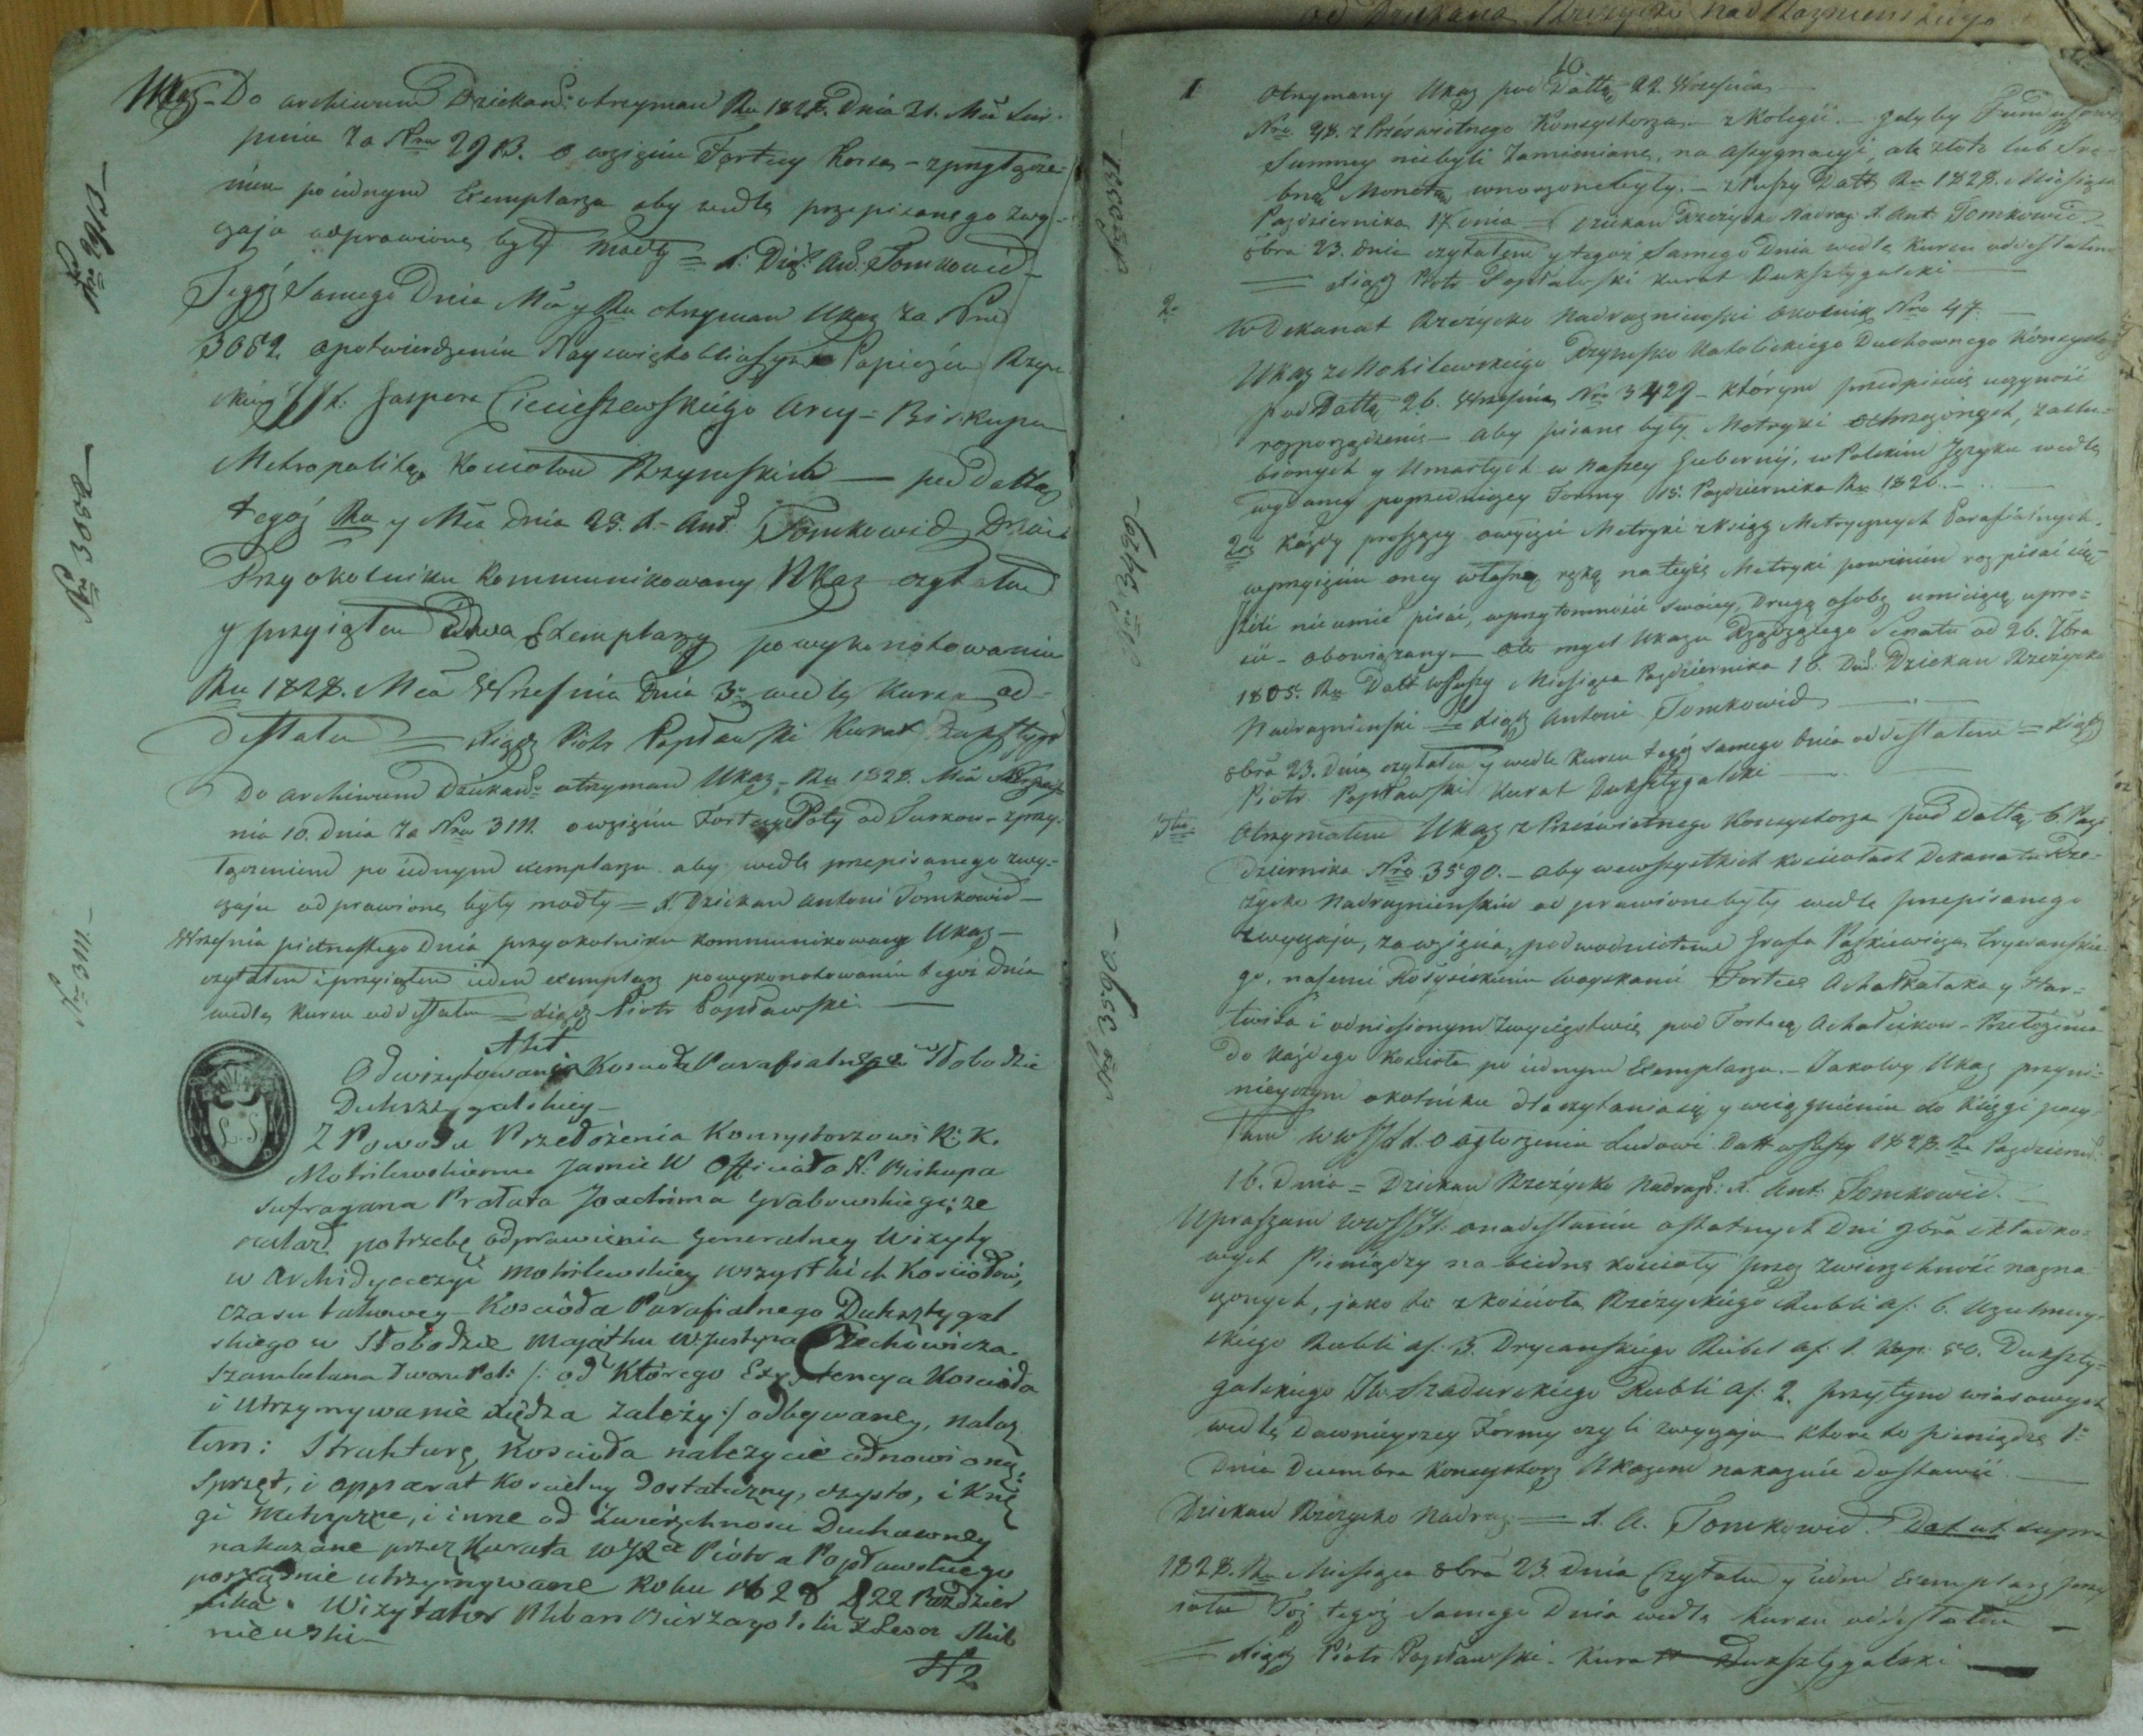 Ukaz - Do archiwum Dziekań: otrzyman Ru 1828. Dnia 31. Mca Sier-
pnia za Nrm 2913. o wzięciu Fortecy Karsa - z przyłącze-
niem po iednym Exemplarzu aby wedle przepisanego zwy-
czaju odprawione były modły = X. Dzie: Ant. Tomkowid
Tegoż Samego Dnia Mca y Ru otrzyman Ukaz za Nrm
3052. o potwierdzeniu Nayswiętobliwszym Papieżu Rzym
skiego X. Jaspera Cieciszewskiego Arcy-Biskupa
Metropolitę Kosciołow Rzymskich — pod Dattą
tegoż Ru y Mca Dnia 25. X. Ant: Tomkowid Dzie
Przy okolniku kommunikowany Ukaz czytałem
y przyiąłem Dwa Exemplarzy po wykonotowaniu
Ru 1828. Mca Września Dnia 3o wedle Kursu od-
desłałem = Xiądz Piotr Popławski Kurat Duksztyg
Do archiwum Dziekań: otrzyman Ukaz - Ru 1828. Mca
nia 10. Dnia za Nrm 3111. o wzięciu Fortecy Poty od Turkow - z przy-
łączeniem po iednym exemplarzu aby wedle przepisanego zwy-
czaju odprawione były modły = X. Dziekan Antoni Tomkowid -
Września pietnastego Dnia przy okolniku kommunikowany Ukaz -
czytałem i przyiąłem ieden exemplarz po wykonotowaniu tegoż Dnia
wedle kursu oddesłałem = Xiądz Piotr Popławski. —
Akt
Odwizytowania Kosciała Parafialnego w Słobodzie
Duksztygalskiey -
L. S.
Z Powodu Przedożenia Konsystorzowi R: K.
Mohilewskiemu Jasnie W Officiała N. Biskupa
sufragana Prałata Joachima Grabowskiego; że
nalazł potrzebę odprawienia Generalney Wizyty
w Archidyecezyi Mohilewskiey wszystkich Kosciołow,
czasu takowey - Kosciała Parafialnego Duksztygal
skiego w Słobodzie Majątku W. Justyna Czechowicza
Szambelana Dworu Pol: /: od Którego Exystencya Kosciała
i utrzymywanie xiędza zależy :/ odbywaney, nalaz
łem: Strukturę Kosciała należycie odnowioną:
sprzęt, i apparat Koscielny dostateczny, czysto, i Xię
gi Metryczne, i inne od Zwierzchnosci Duchowney
nakazane przez Kurata WJXa Piotra Popławskiego
porządnie utrzymywane Roku 1828 8 22 Paździer
nika. Wizytator Pleban
niewski -
N2
No 2913 -
Nro 3052 -
Nro 3111. -
10
1 Otrzymany Ukaz pod Dattą 22 Wrzesnia -
Nro 98. z Prześwietnego Konsystorza - z Kolegii. - gdyby Funduszowe
Summy niebyli zamieniane, na assygnacyi, ale złotą lub Sre-
brną Monetą wnoszone były. - z Puszy Datt Ru 1828. Miesiąca
Pazdziernika 17 dnia = Dziekan Rzeżycko Nadraz. X. Ant: Tomkowid
8bra 23. dnia czytałem y tegoż Samego Dnia wedle Kursu oddesłałem
= Xiądz Piotr Popławski Kurat Duksztygalski —
2o W Dekanat Rzeżycko Nadrazniewski okolnik Nro 47. -
Ukaz z Mohilewskiego Rzymsko Katolickiego Duchownego Konsystor
pod Dattą 26. Wrzesnia Nro 3429 - którym przedpisuie uczynić
rozporządzenie - aby pisane były Metryki ochrzczonych, zaślu-
bionych y Umarłych w naszey Gubernii, w Polskim Języku wedle
wydaney poprzedniczey Formy 15. Pazdziernika Ru 1826. -
2re Każdy proszący o wyięcie Metryki z ksiąg Metrycznych Parafialnych.
w przyięciu oney własną ręką na teyże Metryki powinien rozpisać się -
Jeśli nieumie pisać, w przytomności swoiey, Drugą osobę umieiącą upro-
sić - obowiązany - ale mysl Ukazu Rządzącego Senatu od 26. 7bra
1805. Ru Datt w Puszy Miesiąca Pazdziernika 16. Dnia: Dziekan Rzeżycko
Nadrazniewski = Xiądz Antoni Tomkowid —
8bra 23. Dnia czytałem y wedle Kursu tegoż samego Dnia oddesłałem = Xiądz
Piotr Popławski Kurat Duksztygalski —
3tio Otrzymałem Ukaz z Prześwietnego Konsystorza pod Dattą 6. Paz-
dziernika Nro 3590. - aby we wszystkich kosciołach Dekanatu Rze-
życko Nadrazniewskim odprawione były wedle przepisanego
zwyczaju, za wzięcia, pod wodzictwem Grafa Paszkiewicza Erywańskie
go, naszemi Rossyiskiemi Woyskami Fortece Achałkałaka y Har-
twisa i odniesionym zwycięstwie pod Fortecą Achałcikow - Przełożenia
Do Każdego Kościoła po iednym Exemplarzu. - Jakowy Ukaz przyni-
nieyszym okolniku dla czytania się y wciągnienia do Xięgi posy-
łam WWJXX. o ogłoszenia Ludowi Datt w Puszy 1828. Ru Pazdziern:
16. Dnia = Dziekan Rzeżycko Nadraz: X. Ant: Tomkowid. -
Upraszam WWJXX. o nadesłaniu ostatnych Dni 9bra składko-
wych Pieniędzy na biedne kościoły przez zwierzchność nazna-
czonych, jako to z kościoła Rzeżyckiego Rubli as: 6. Uzulmuy-
skiego Rubli as. 3. Drycanskiego Rubel as: 1. kop: 50. Dukszty-
galskiego Rubli as: 2. przytym
wedle dawnieyszey Formy czyli zwyczaju które to pieniądze 1o
Dnia Decembra Konsystorz Ukazem nakazuie dostawić. —
Dziekan Rzeżycko Nadraz = X. A. Tomkowid. Dat ut supra
1828. Ru Miesiąca 8bra 23. dnia Czytałem y ieden Exemplarz przy
iołem Toż tegoż Samego Dnia wedle kursu oddesłałem -
= Xiądz Piotr Popławski - Kurat Duksztygalski —
Nro 3429 -
Nro 3590. -